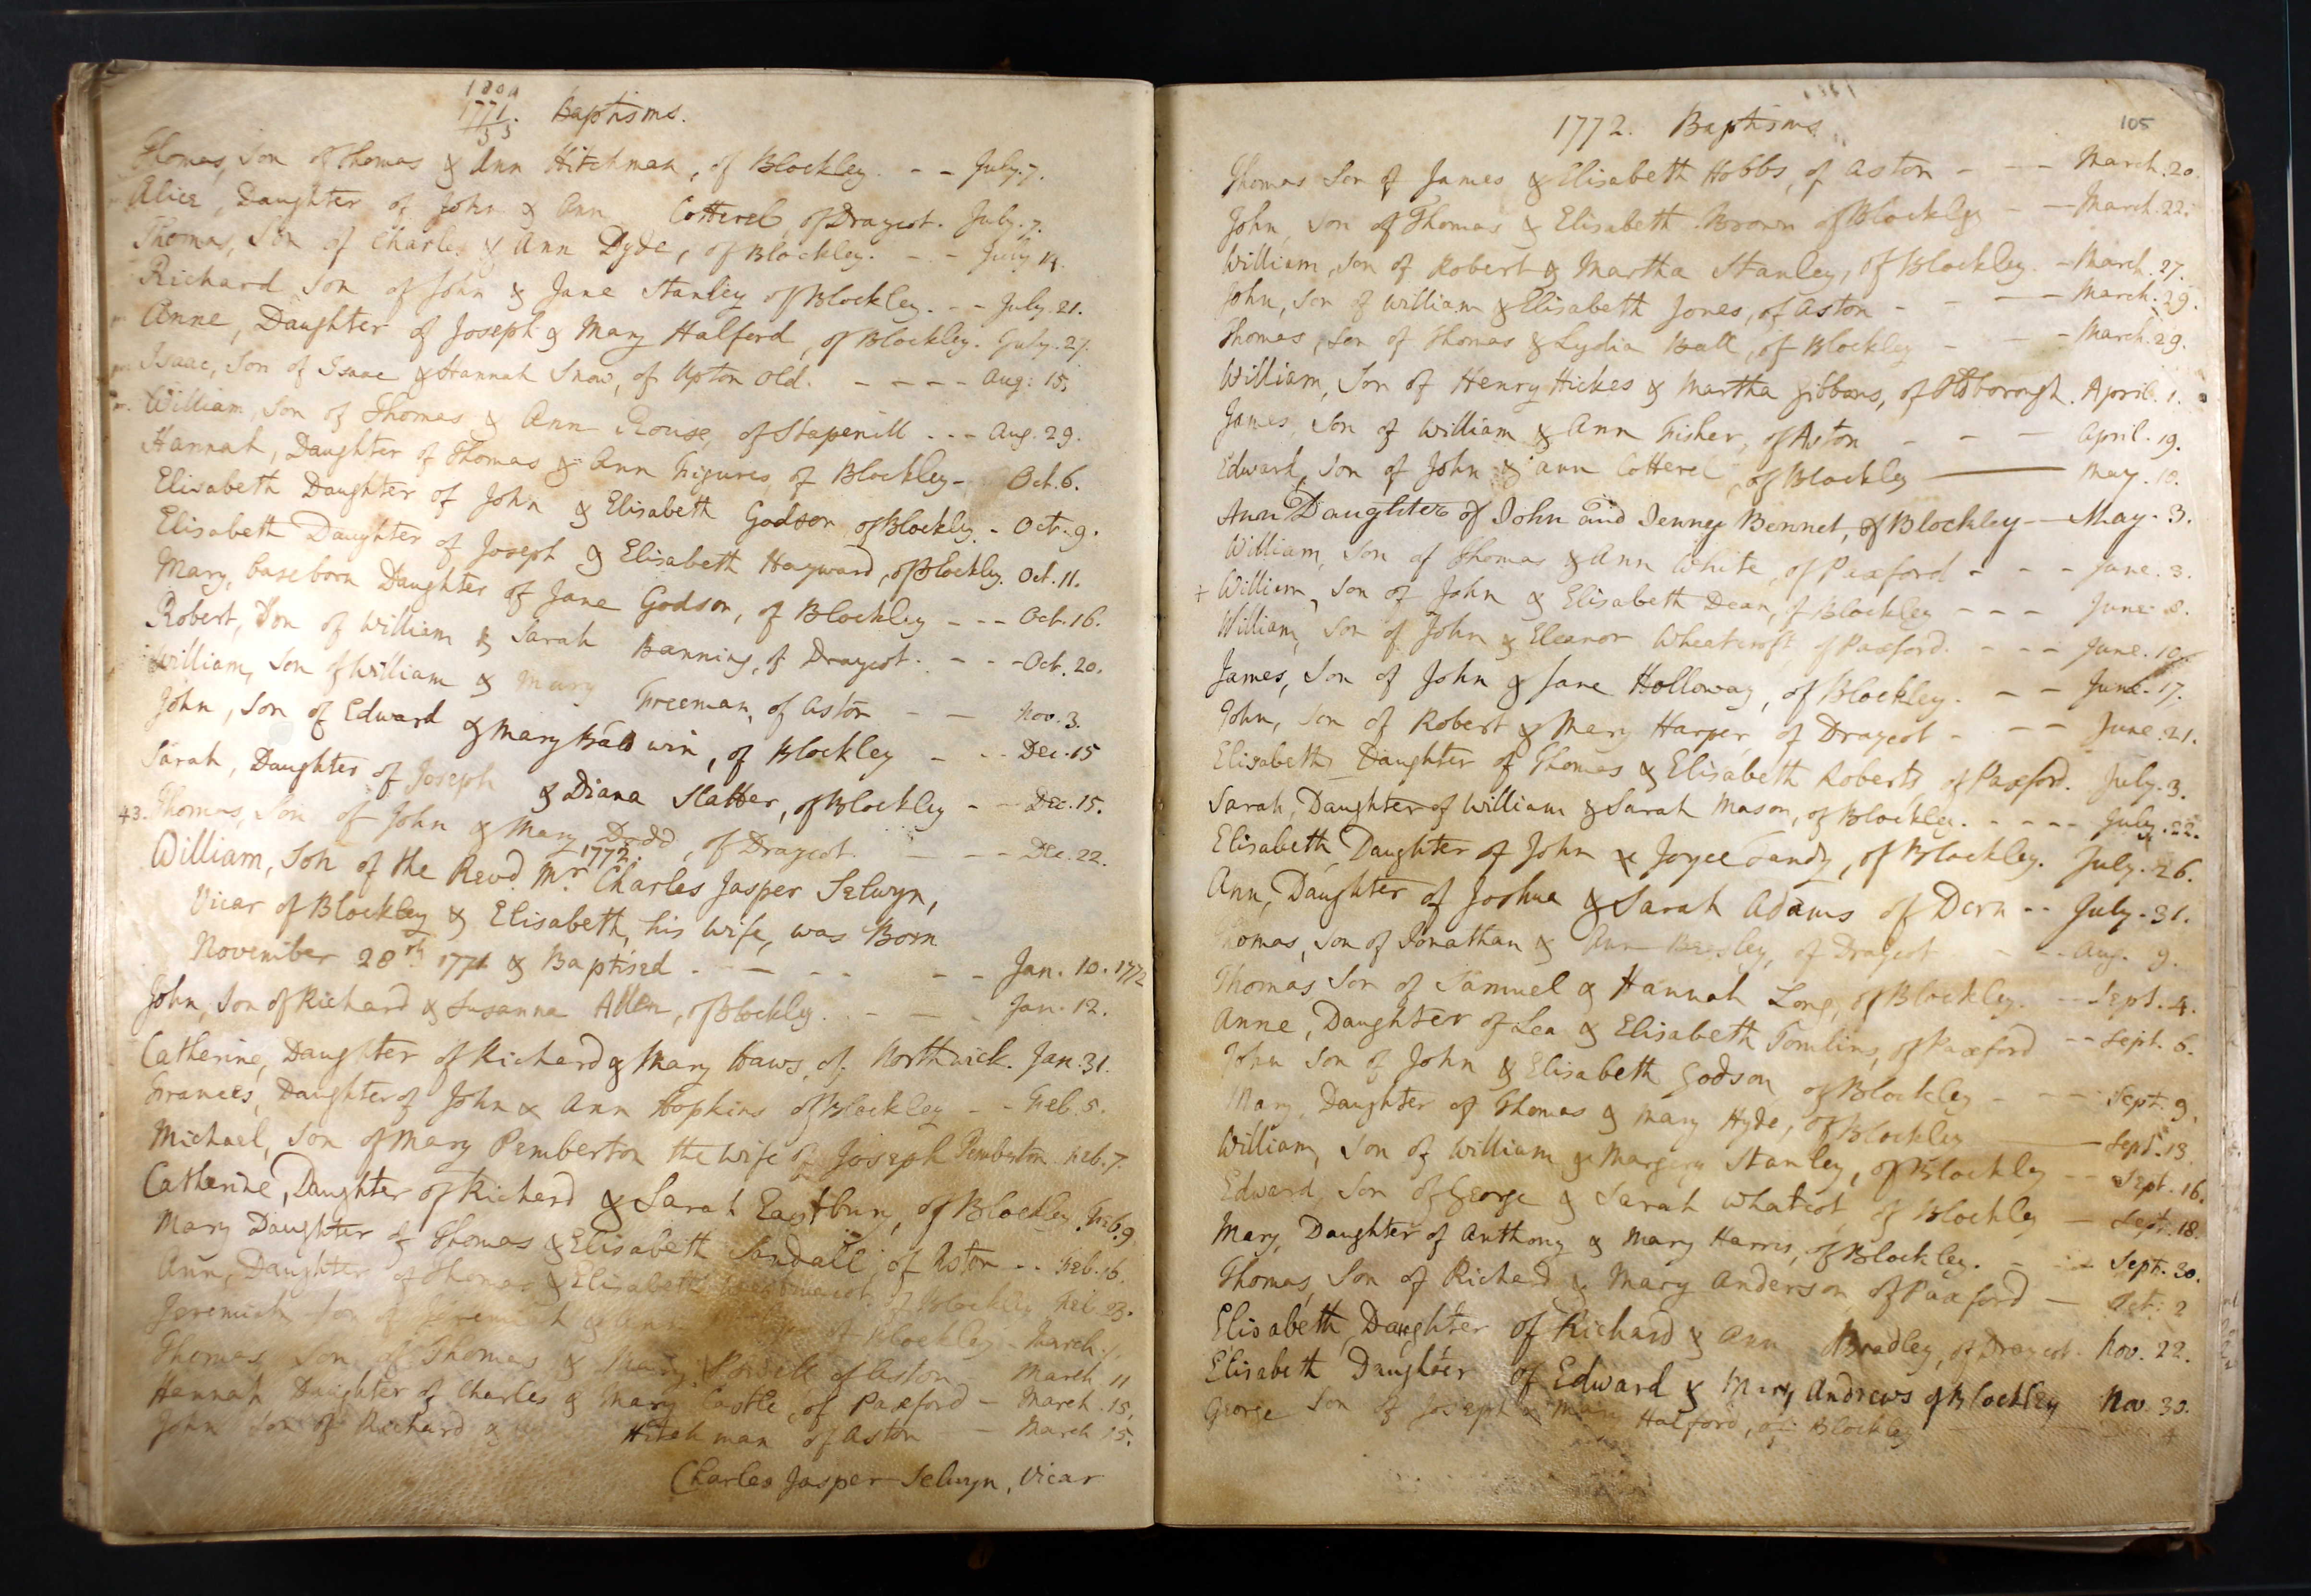 1771. Baptisms.
Thomas, Son of Thomas & Ann Hitchman, of Blockley. - - July. 7.
Alice, Daughter of John & Ann Cotterel, of Draycot. July. 7.
Thomas, Son of Charles & Ann Dyde, of Blockley. - - July 14.
Richard Son of John & Jane Stanley of Blockley. - - July. 21.
Anne, Daughter of Joseph & Mary Halford, of Blockley. July. 27.
Isaac, Son of Isaac & Hannah Snow, of Upton Old. - - - - Aug: 15.
William, Son of Thomas & Ann Rouse, of Stapenill - - - Aug. 29.
Hannah, Daughter of Thomas & Ann Figures, of Blockley - Oct. 6.
Elisabeth Daughter of John & Elisabeth Godson of Blockley. - Oct. 9.
Elisabeth Daughter of Joseph & Elisabeth Hayward, of Blockley. Oct. 11.
Mary, baseborn Daughter of Jane Godson, of Blockley - - - Oct. 16.
Robert, Son of William & Sarah Banning, of Draycot. - - - Oct. 20.
William, Son of William & Mary Freeman, of Aston - - Nov. 3.
John, Son of Edward & Mary Baldwin, of Blockley - - - Dec. 15
Sarah, Daughter of Joseph & Diana Slatter, of Blockley - - Dec. 15.
43. Thomas, Son of John & Mary Dodd, of Draycot. - - - Dec. 22.
1772.
William, Son of the Revd. Mr. Charles Jasper Selwyn,
Vicar of Blockley & Elisabeth, his Wife, was Born
November 28th 1771 & Baptised - - - - - - Jan. 10. 1772
John, Son of Richard & Susanna Allen, of Blockley. - - - Jan. 12.
Catherine, Daughter of Richard & Mary Haws, of Northwick. Jan. 31.
Frances, Daughter of John & Ann Hopkins of Blockley - - Feb. 5.
Michael, Son of Mary Pemberton the Wife of Joseph Pemberton Feb. 7.
Catherine, Daughter of Richard & Sarah Eastbury, of Blockley. Feb. 9
Mary Daughter of Thomas & Elisabeth Sendall, of Aston - - Feb. 16.
Ann, Daughter of Thomas & Elisabeth of Blockley Feb. 23.
Jeremiah Son of Jeremiah & Ann of Blockley - March.
Thomas, Son of Thomas & Mary Powell of Aston - March 11
Hannah, Daughter of Charles & Mary Castle, of Paxford - March. 15,
John Son of Richard & Hitchman of Aston - March 15.
Charles Jasper Selwyn, Vicar
1772. Baptisms.
105
Thomas Son of James & Elisabeth Hobbs, of Aston - - - March. 20.
John, Son of Thomas & Elisabeth Brown of Blockley - - March. 22.
William, Son of Robert & Martha Stanley, of Blockley. - March. 27.
John, Son of William & Elisabeth Jones, of Aston - - - - March. 29.
Thomas, Son of Thomas & Lydia Ball, of Blockley - - - March. 29.
William, Son of Henry Hickes & Martha Gibbons, of Oldborough. April. 1.
James, Son of William & Ann Fisher, of Aston - - - April. 19.
Edward, Son of John & Ann Cotterel, of Blockley - May. 10.
Ann Daughter of John and Jenney Bennet, of Blockley - May. 3.
William, Son of Thomas & Ann White, of Paxford - - - June. 3.
+ William, Son of John & Elisabeth Dean, of Blockley - - - June. 8.
William, Son of John & Eleanor Wheatcroft of Paxford. - - - June. 10.
James, Son of John & Jane Holloway, of Blockley. - - June. 17.
John, Son of Robert & Mary Harper, of Draycot - - - June. 21.
Elisabeth, Daughter of Thomas & Elisabeth Roberts, of Paxford. July. 3.
Sarah, Daughter of William & Sarah Mason, of Blockley. - - - - July. 22.
Elisabeth Daughter of John & Joyce Tandy, of Blockley. July. 26.
Ann, Daughter of Joshua & Sarah Adams of Dorn - - July. 31.
Thomas, Son of Jonathan & Ann , of Draycot - - - Aug. 9.
Thomas Son of Samuel & Hannah Long, of Blockley. - Sept. 4.
Anne, Daughter of Lea & Elisabeth Tomlins, of Paxford - - Sept. 6.
John Son of John & Elisabeth Godson of Blockley - - - Sept. 9.
Mary, Daughter of Thomas & Mary Hyde, of Blockley - Sept. 13.
William, Son of William & Margery Stanley, of Blockley - - Sept. 16.
Edward, Son of George & Sarah Whatcot, of Blockley - Sept. 18.
Mary, Daughter of Anthony & Mary Harris, of Blockley. - - - Sept. 30.
Thomas, Son of Richard & Mary Anderson of Paxford - Oct. 2
Elisabeth, Daughter of Richard & Ann Bradley, of Draycot. Nov. 22.
Elisabeth Daughter of Edward & Mary Andrews of Blockley Nov. 30.
George Son of Joseph & Mary Halford, of Blockley - 4